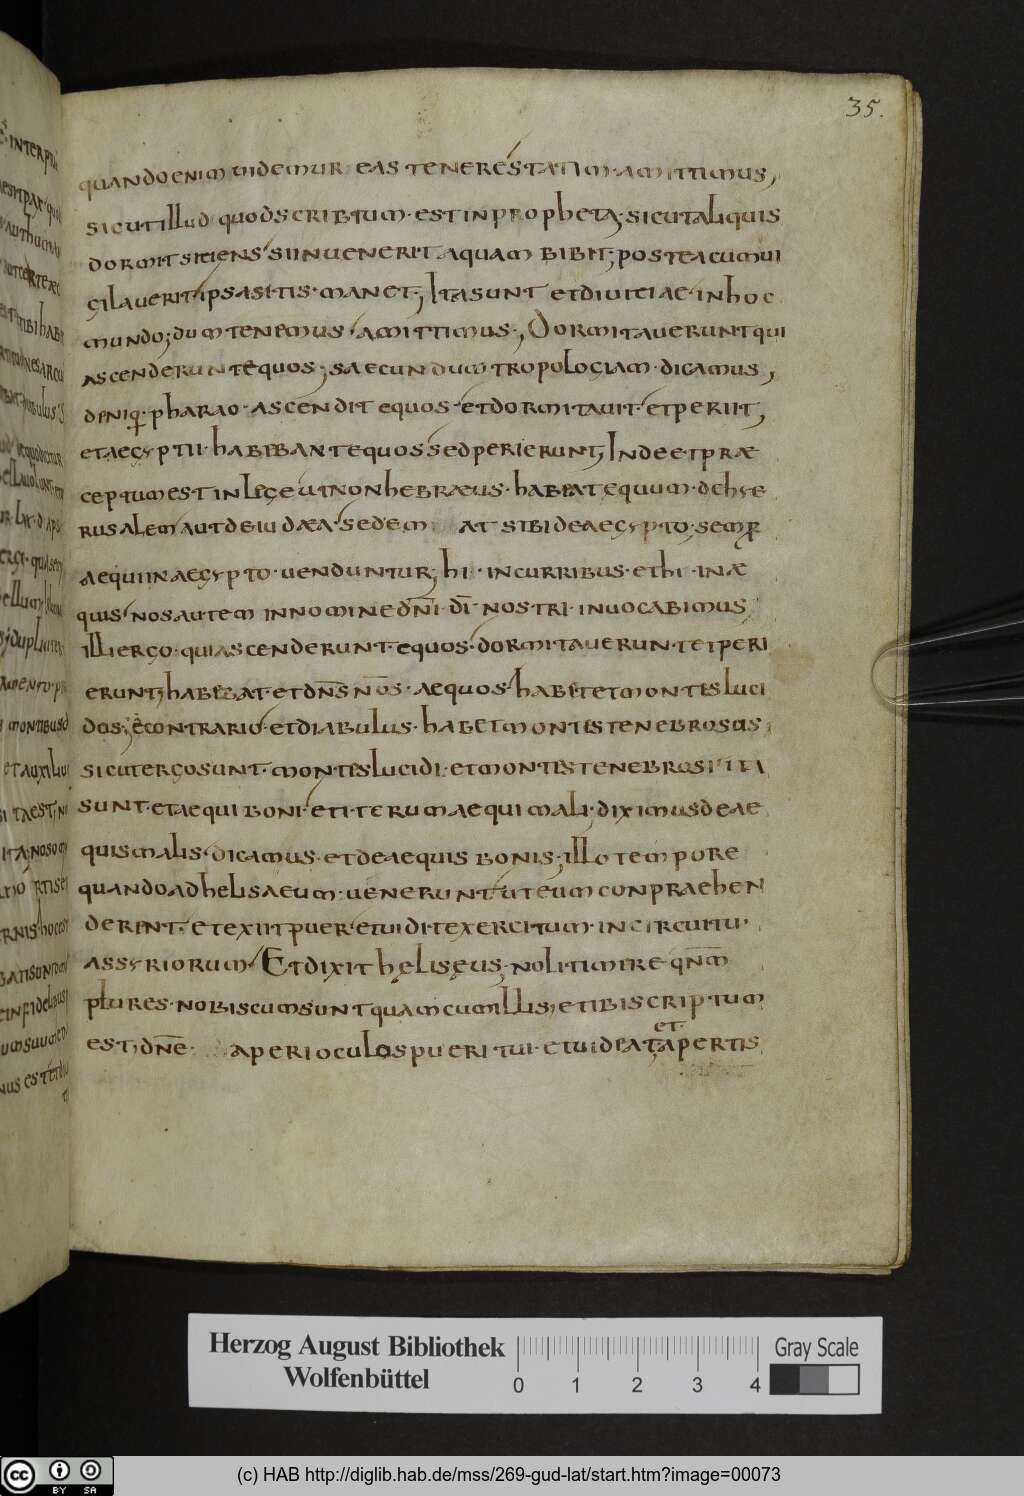 35.
quandoenim uidemur eas teneres tatim amittimus,
sicut illud quod scribtum est in propheta sicut aliquis
dormit sitiens si inuenerit aquam bibit; postea cum ui
gilauerit ipsa sitis manet; Ita sunt et diuitiae in hoc
mundo; dum tenemus amittimus; Dormitauerunt qui
ascenderunt equos; saecundum tropologiam dicamus,
deniq. pharao ascendit equos et dormitauit et periit,
et aegyptii habebant equos sed perierunt; Inde et præ
ceptum est in lege ut non hebræus habeat equum de hye
rusalem aut de iudæa sed em at sibi de aegypto; semper
aequi in aegypto uenduntur; hi in curribus et hi in æ
quis nos autem in nomine dn̄i dī nostri inuocabimus
illi ergo qui ascenderunt equos dormitauerunt et peri
erunt; habebat et dn̄s nōs aequos habet et montes luci
dos; econtrario et diabulus habet montes tenebrosus
sicut ergo sunt montes lucidi et montes tenebrosi ita
sunt et aequi boni et iterum aequi mali diximus de ae
quis malis dicamus et de aequis bonis; illo tempore
quando ad helisaeum uenerunt ut eum conpraehen
derent et exiit puer et uidit exercitum in circuitu
assyriorum Et dixit heliseus noli timere qn̄m
plures nobiscum sunt quam cum illis, et ibi scriptum
est, dn̄e aperi oculos pueri tui et uideat et apertis
Herzog August Bibliothek
Wolfenbüttel
0 1 2 3 4
Gray Scale
cc BY SA
(c) HAB http://diglib.hab.de/mss/269-gud-lat/start.htm?image=00073